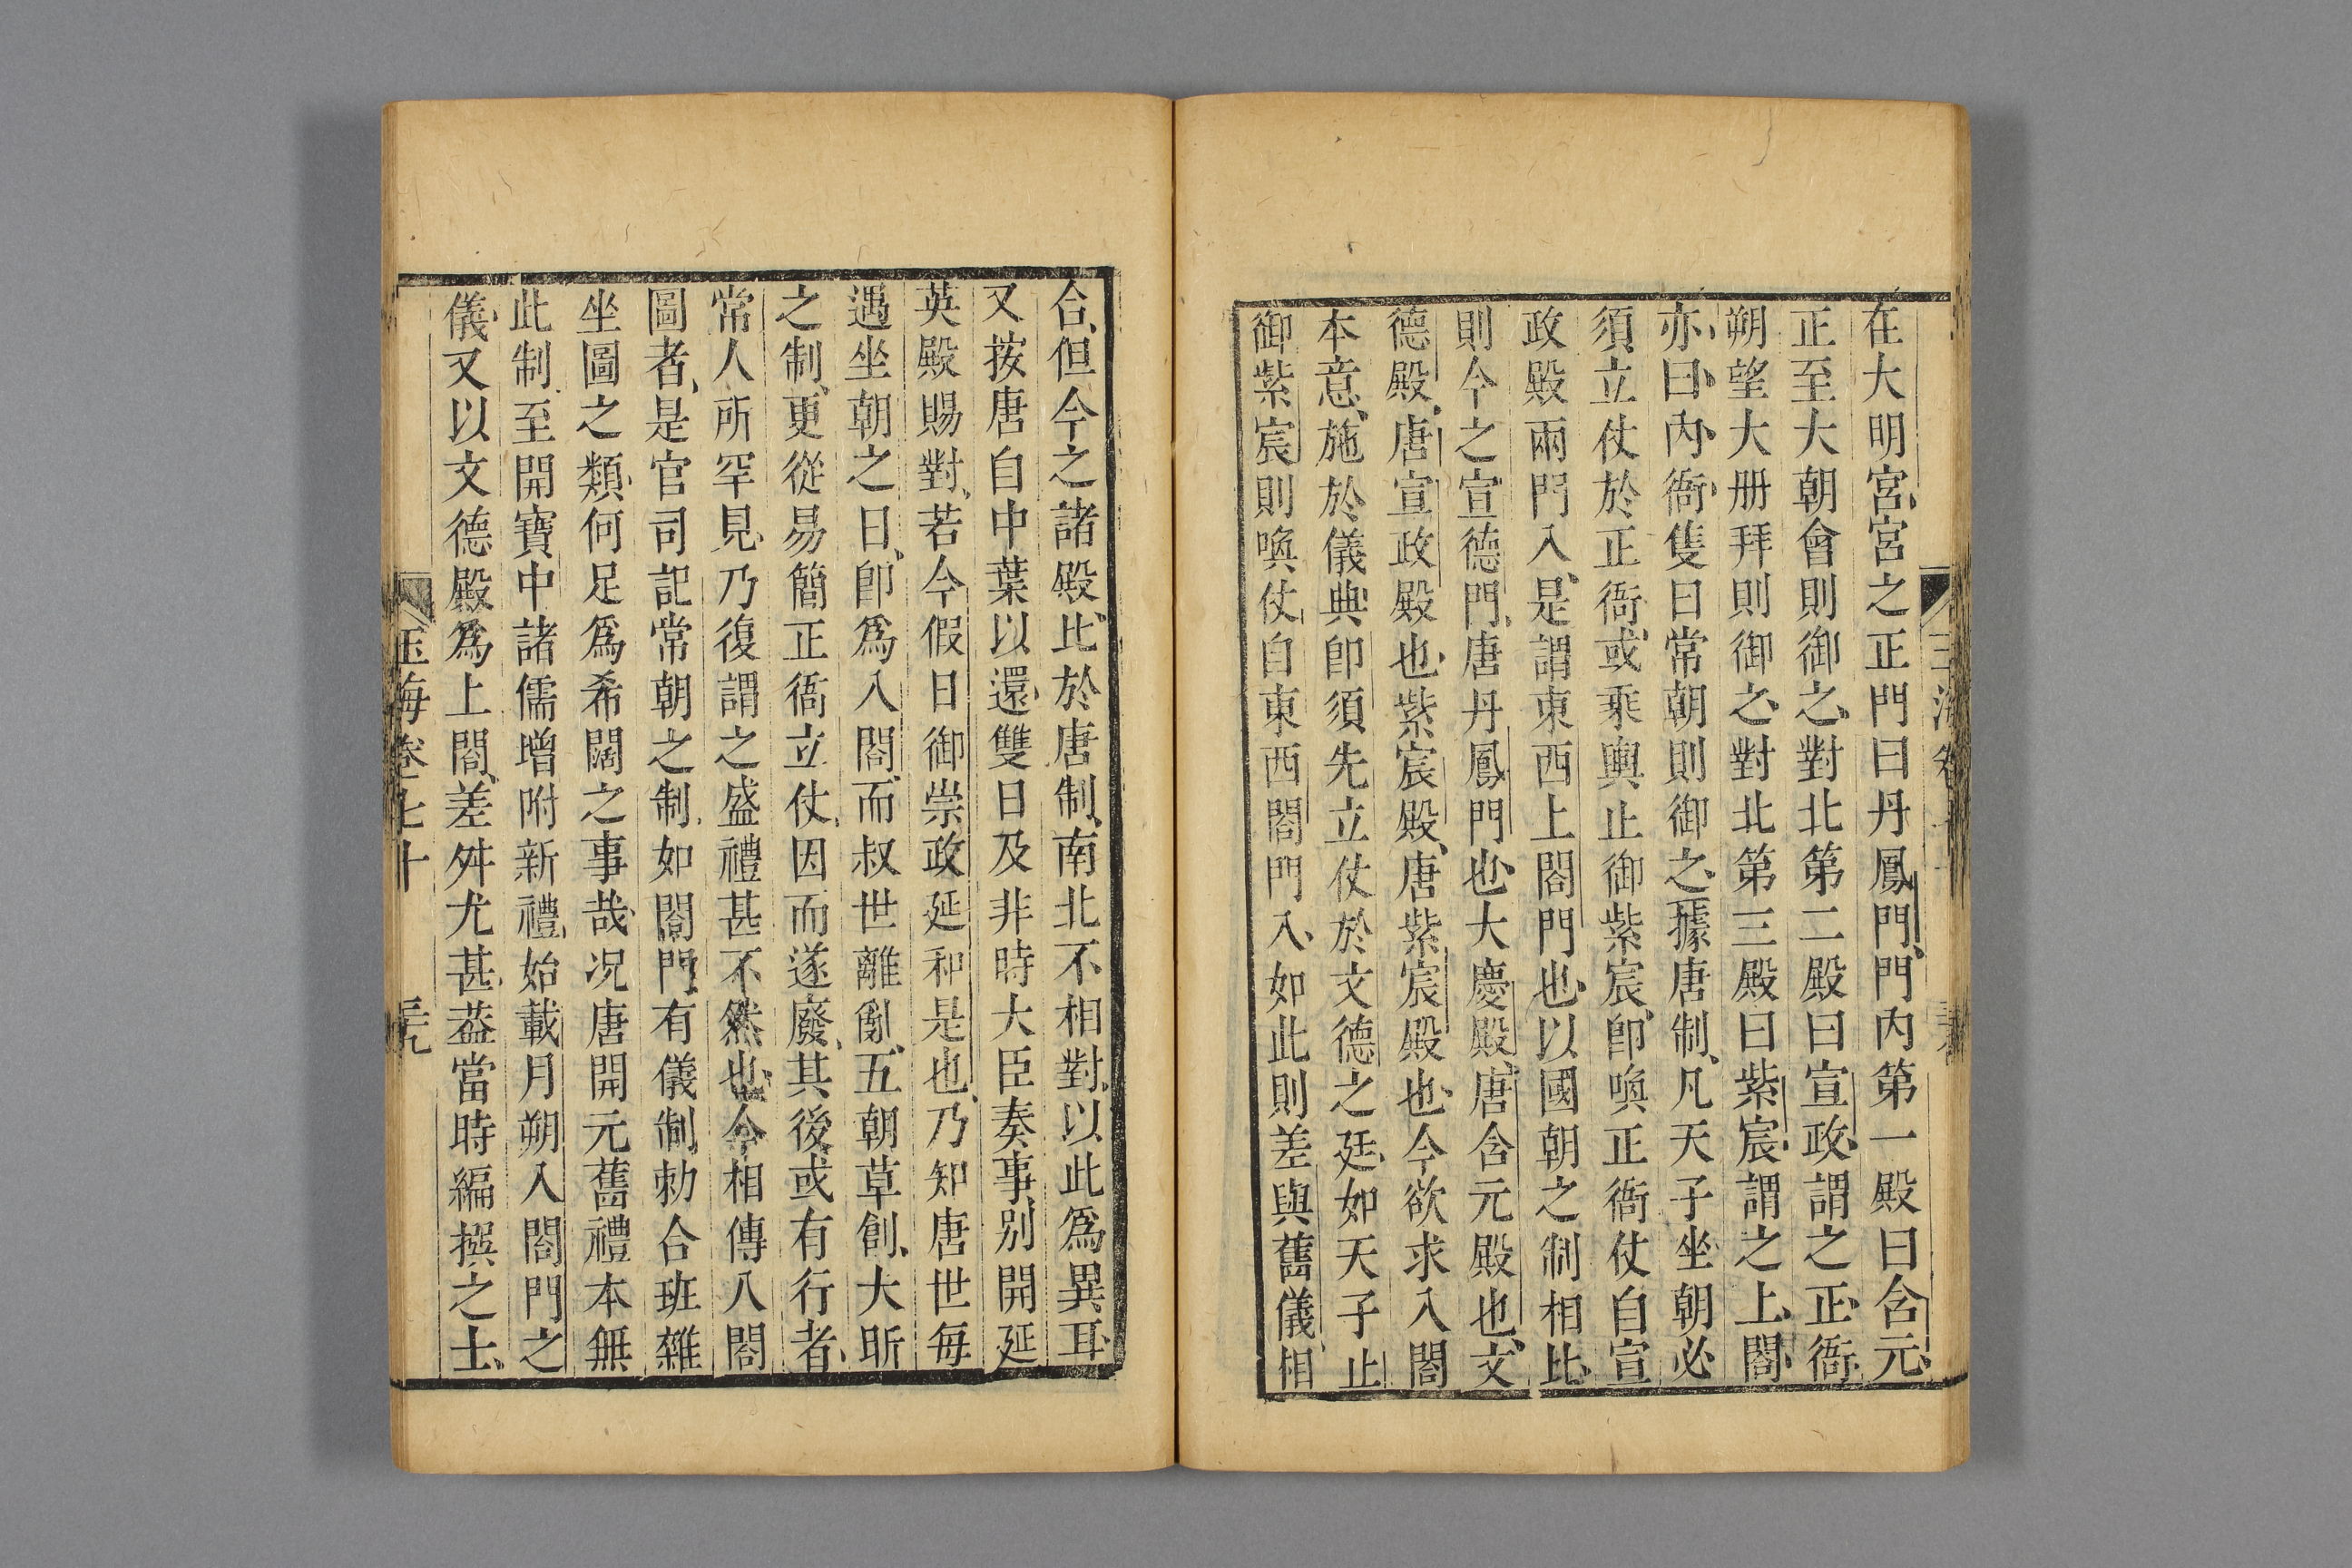 在大明宮宮之正門曰丹鳳門門内第一殿曰含元
正至大朝會則御之對北第二殿曰宣政謂之正衙
朔望大册拜則御之對北第三殿曰紫宸謂之上閤
亦曰內衙隻日常朝則御之據唐制凡天子坐朝必
須立仗於正衙或乘輿止御紫宸即喚正衙仗自宣
政殿兩門入是謂東西上閤門也以國朝之制相比
則今之宣德門唐丹鳳門也大慶殿唐含元殿也文
德殿唐宣政殿也紫宸殿唐紫宸殿也今欲求入閤
本意施於儀典即須先立仗於文德之廷如天子止
御紫宸則喚仗自東西閤門入如此則差與舊儀相
合但今之諸殿比於唐制南北不相對以此爲異耳
又按唐自中葉以還雙日及非時大臣奏事別開延
英殿賜對若今假日御崇政延和是也乃知唐世毎
遇坐朝之日即爲入閤而叔世離亂五朝草創大昕
之制更從易簡正衙立仗因而遂廢其後或有行者
常人所罕見乃復謂之盛禮甚不然也今相傳入閤
圖者是官司記常朝之制如閤門有儀制勑合班雜
坐圖之類何足爲希闊之事哉况唐開元舊禮本無
此制至開寶中諸儒增附新禮始載月朔入閤門之
儀又以文德殿爲上閤差舛尤甚葢當時編撰之士
玉海卷七十